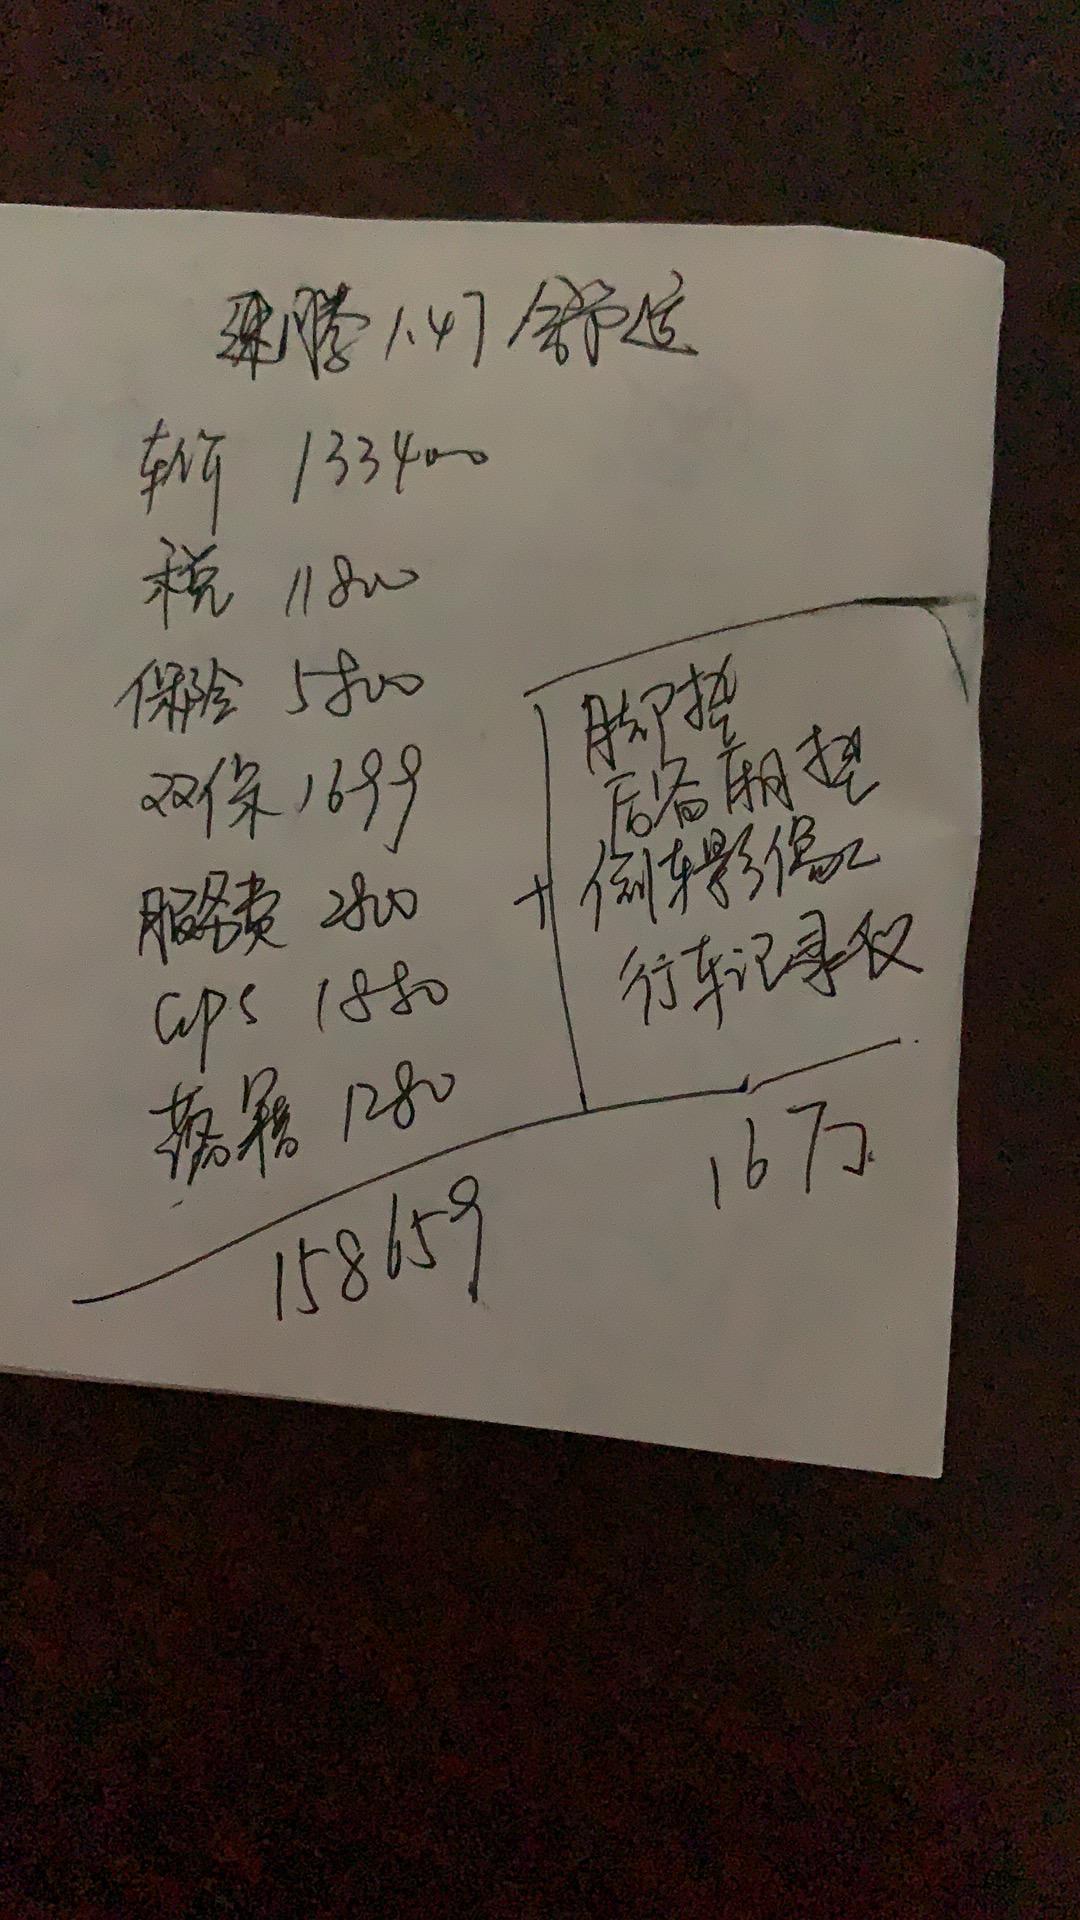 速腾 1.4T 舒适
车价 133400
税 11800
保险 5800
双保 1699
服务费 2800
GPS 1880
落籍 1280
158659
+
脚垫
后备厢垫
倒车影像
行车记录仪
16万.